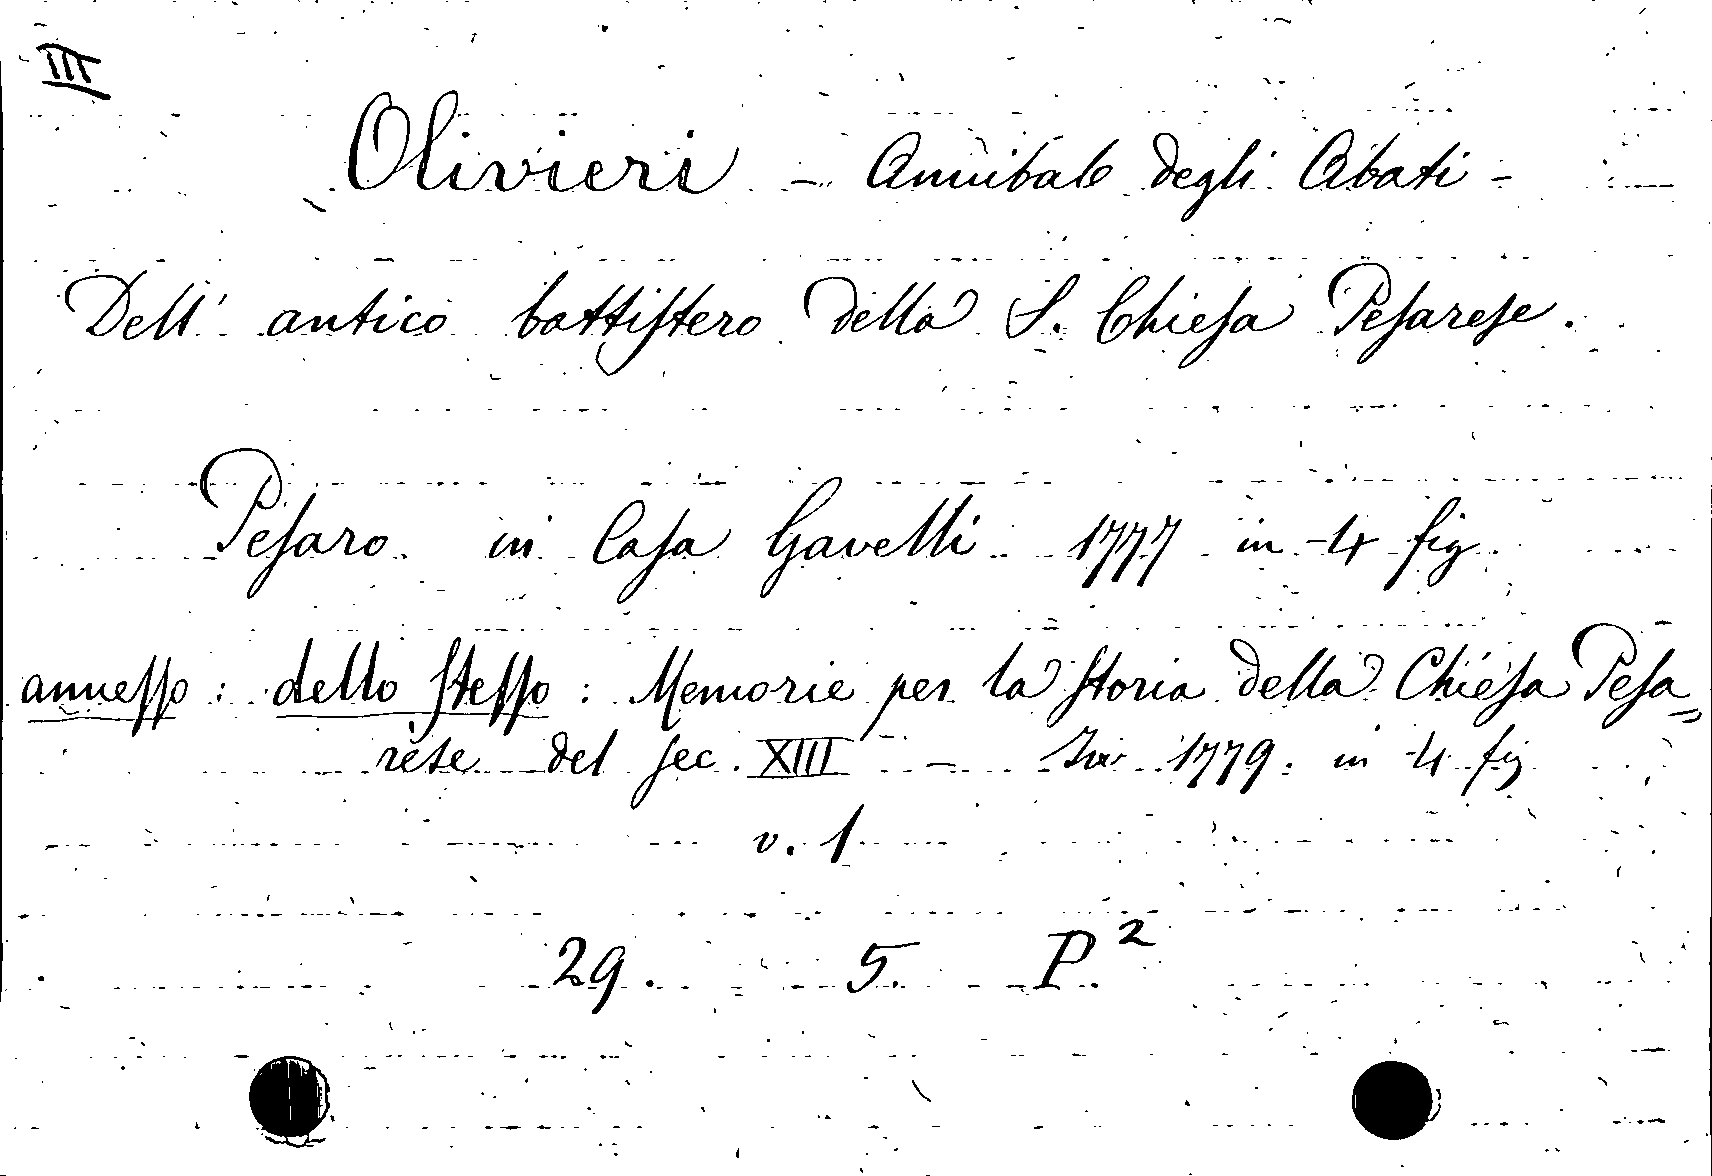 III
Olivieri - Annibale degli Abati -
Dell' antico battistero della S. Chiesa Pesarese.
Pesaro in Casa Gavelli 1777 in 4 fig.
annesso: dello stesso: Memorie per la storia della Chiesa Pesa=
rese del sec. XIII - Ivi 1779. in 4 fig
v. 1
29. 5. P.²